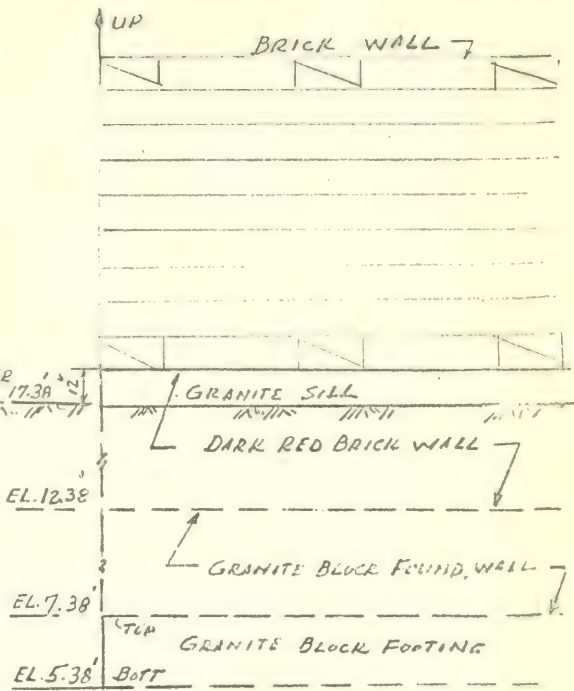 UP
BRICK WALL
17.38' 12"
GRANITE SILL
DARK RED BRICK WALL
EL. 12.38'
GRANITE BLOCK FOUND. WALL
EL. 7.38'
TOP
GRANITE BLOCK FOOTING
EL. 5.38' BOTT